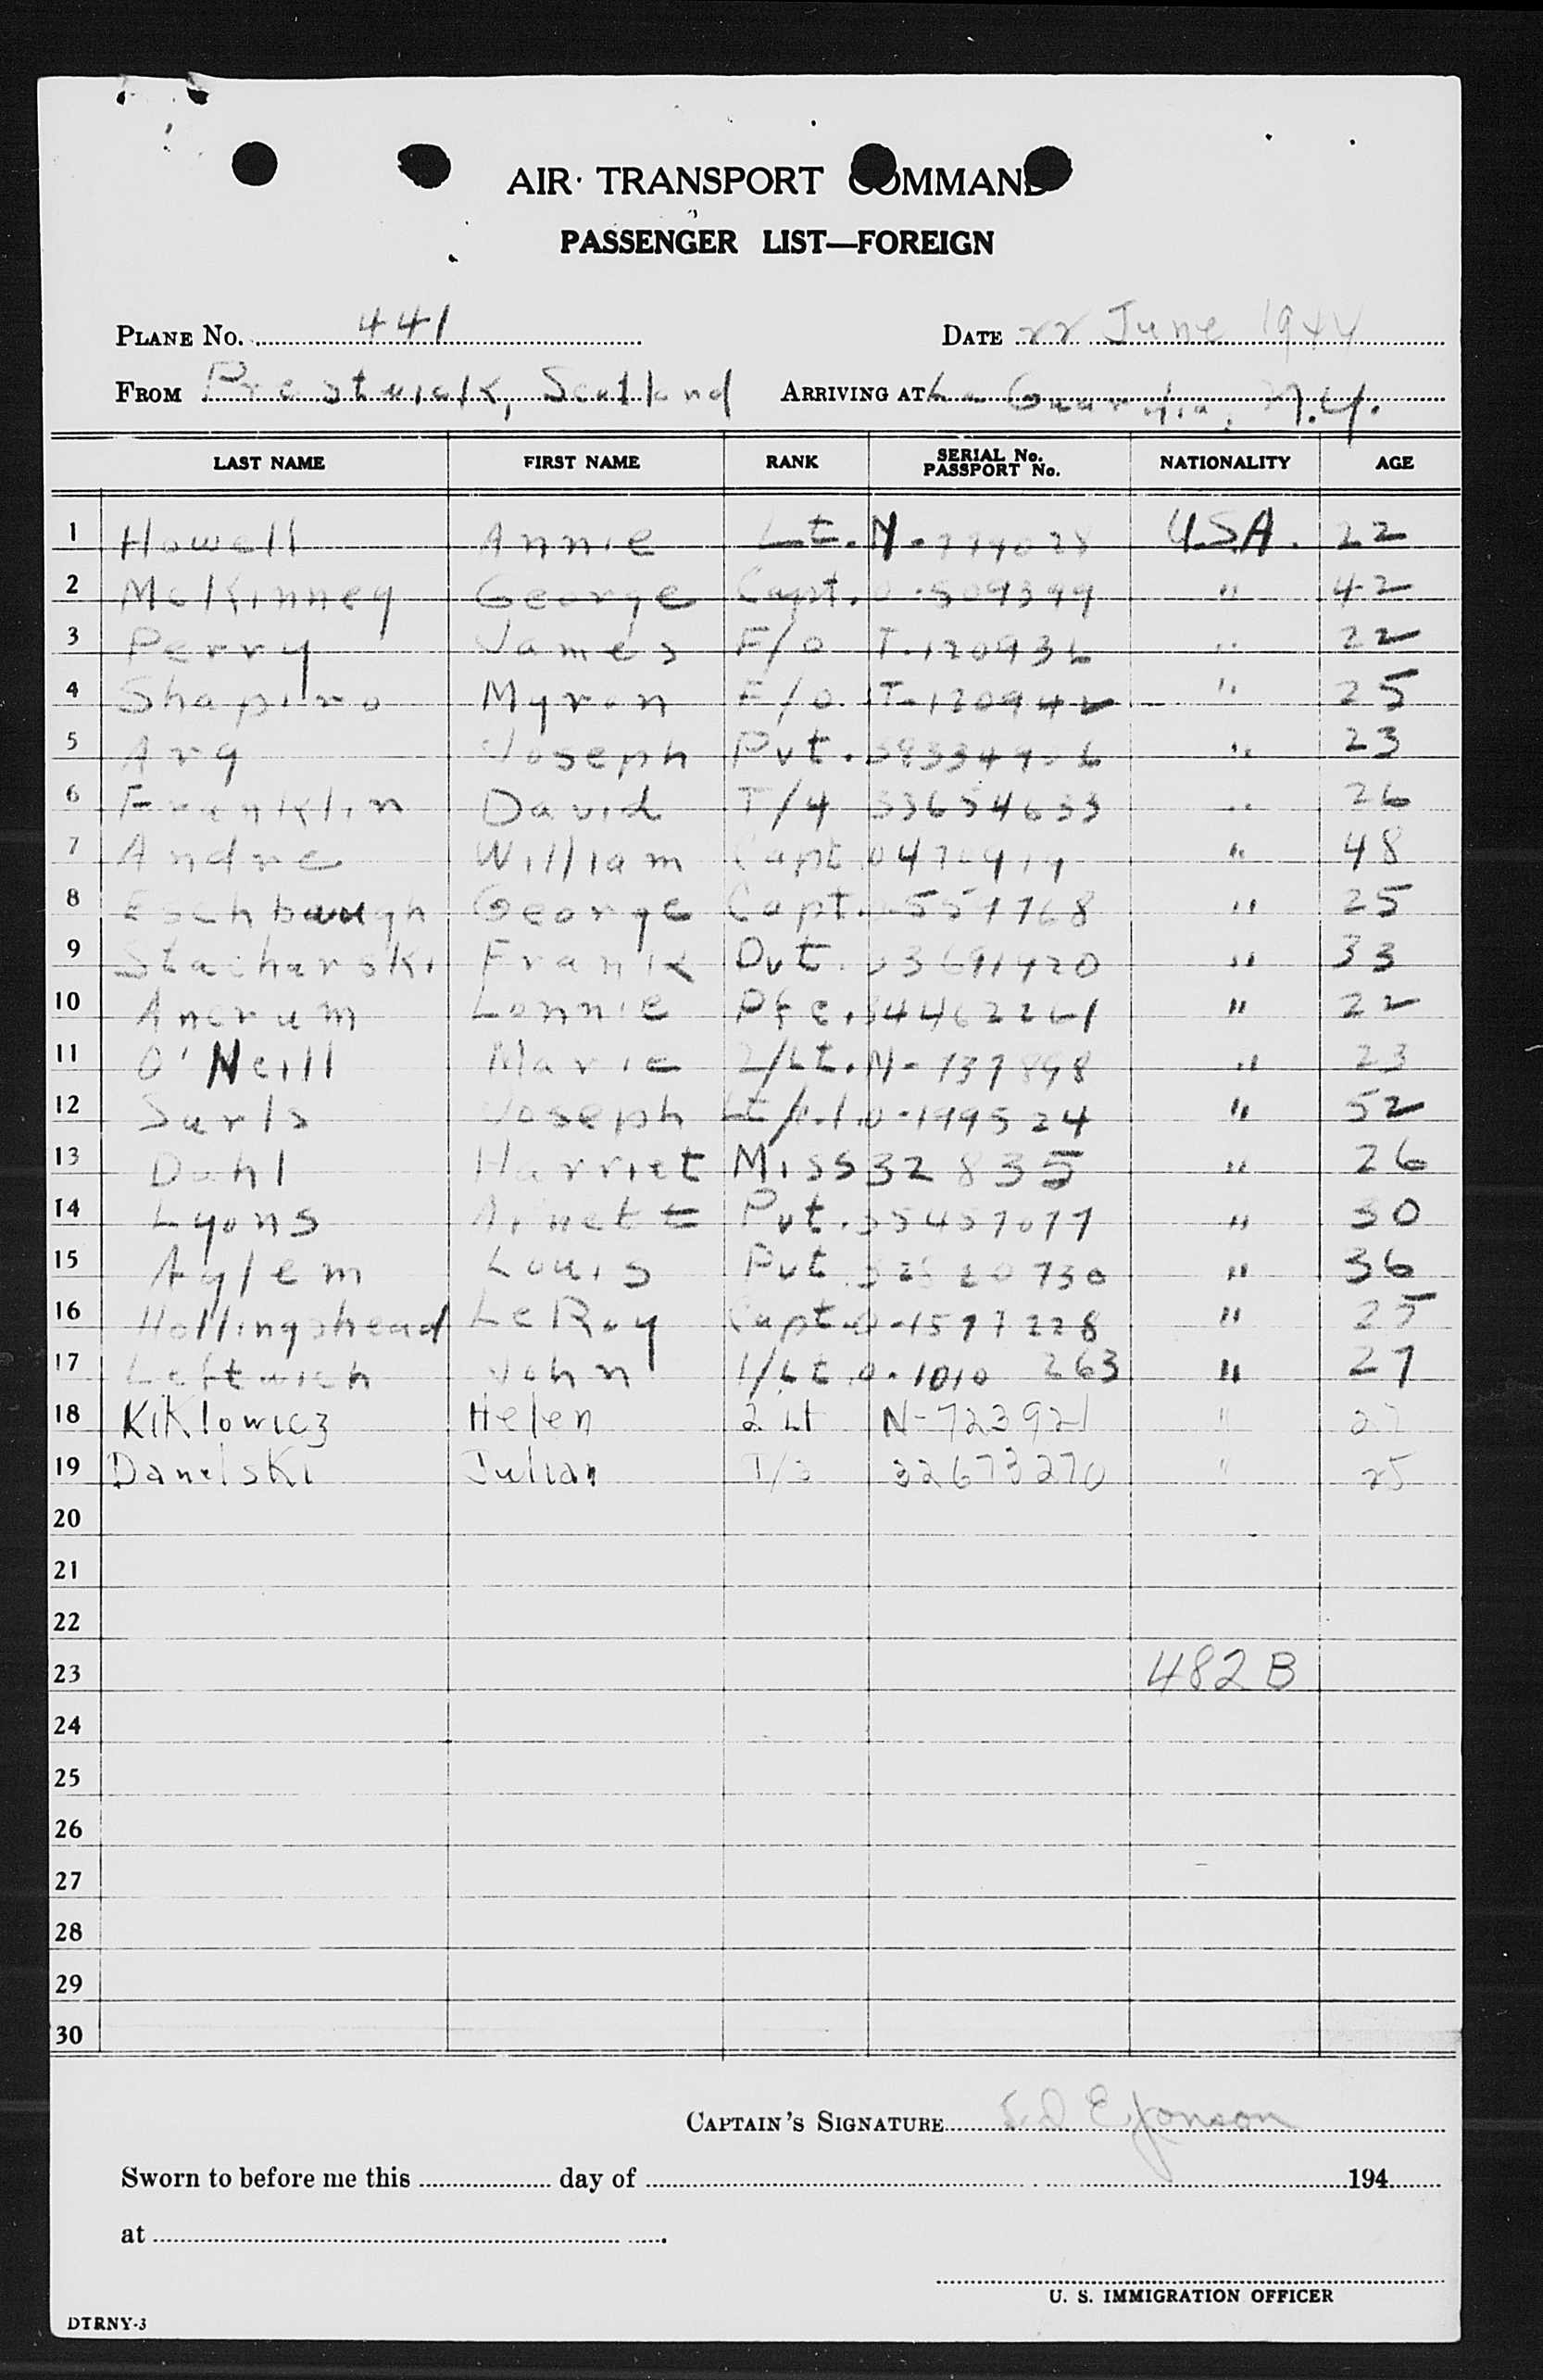 AIR TRANSPORT COMMAND
PASSENGER LIST—FOREIGN
PLANE No. 441 DATE 22 June 1944
FROM Prestwick, Scotland ARRIVING AT La Guardia, N.Y.
LAST NAME FIRST NAME RANK SERIAL No. PASSPORT No. NATIONALITY AGE
1 Howell Annie Lt. U.S.A. 22
2 McKinney George Capt. O-509399 " 42
3 Perry James F/O " 22
4 Shapiro Myron F/O " 25
5 Ary Joseph Pvt. " 23
6 Franklin David T/4 33654633 " 26
7 Andre William Capt " 48
8 Eschbaugh George Capt. " 25
9 Stacharski Frank Pvt. 33691420 " 33
10 Ancrum Lonnie Pfc. " 22
11 O'Neill Marie 2/Lt. " 23
12 Surls Joseph O-199524 " 52
13 Dahl Harriet Miss 32835 " 26
14 Lyons Pvt. " 30
15 Aylem Louis Pvt " 36
16 Hollingshead LeRoy Capt. " 25
17 Leftwich John 1/Lt O-1010263 " 27
18 Kiklowicz Helen 2 Lt N-723921 " 27
19 Danelski Julian 32673270 " 25
20
21
22
23 482 B
24
25
26
27
28
29
30
CAPTAIN'S SIGNATURE
Sworn to before me this day of 194
at
U. S. IMMIGRATION OFFICER
DTRNY-3